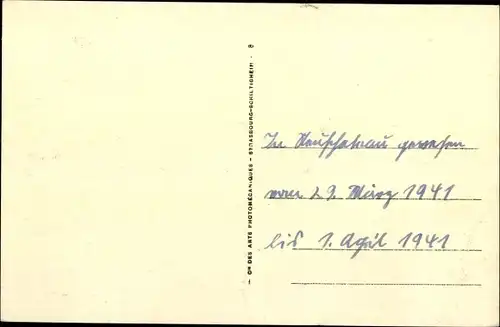 — CIE DES ARTS PHOTOMÉCANIQUES – STRASBOURG-SCHILTIGHEIM - 8
In Neufchateau gewesen
vom 29. März 1941
bis 1. April 1941